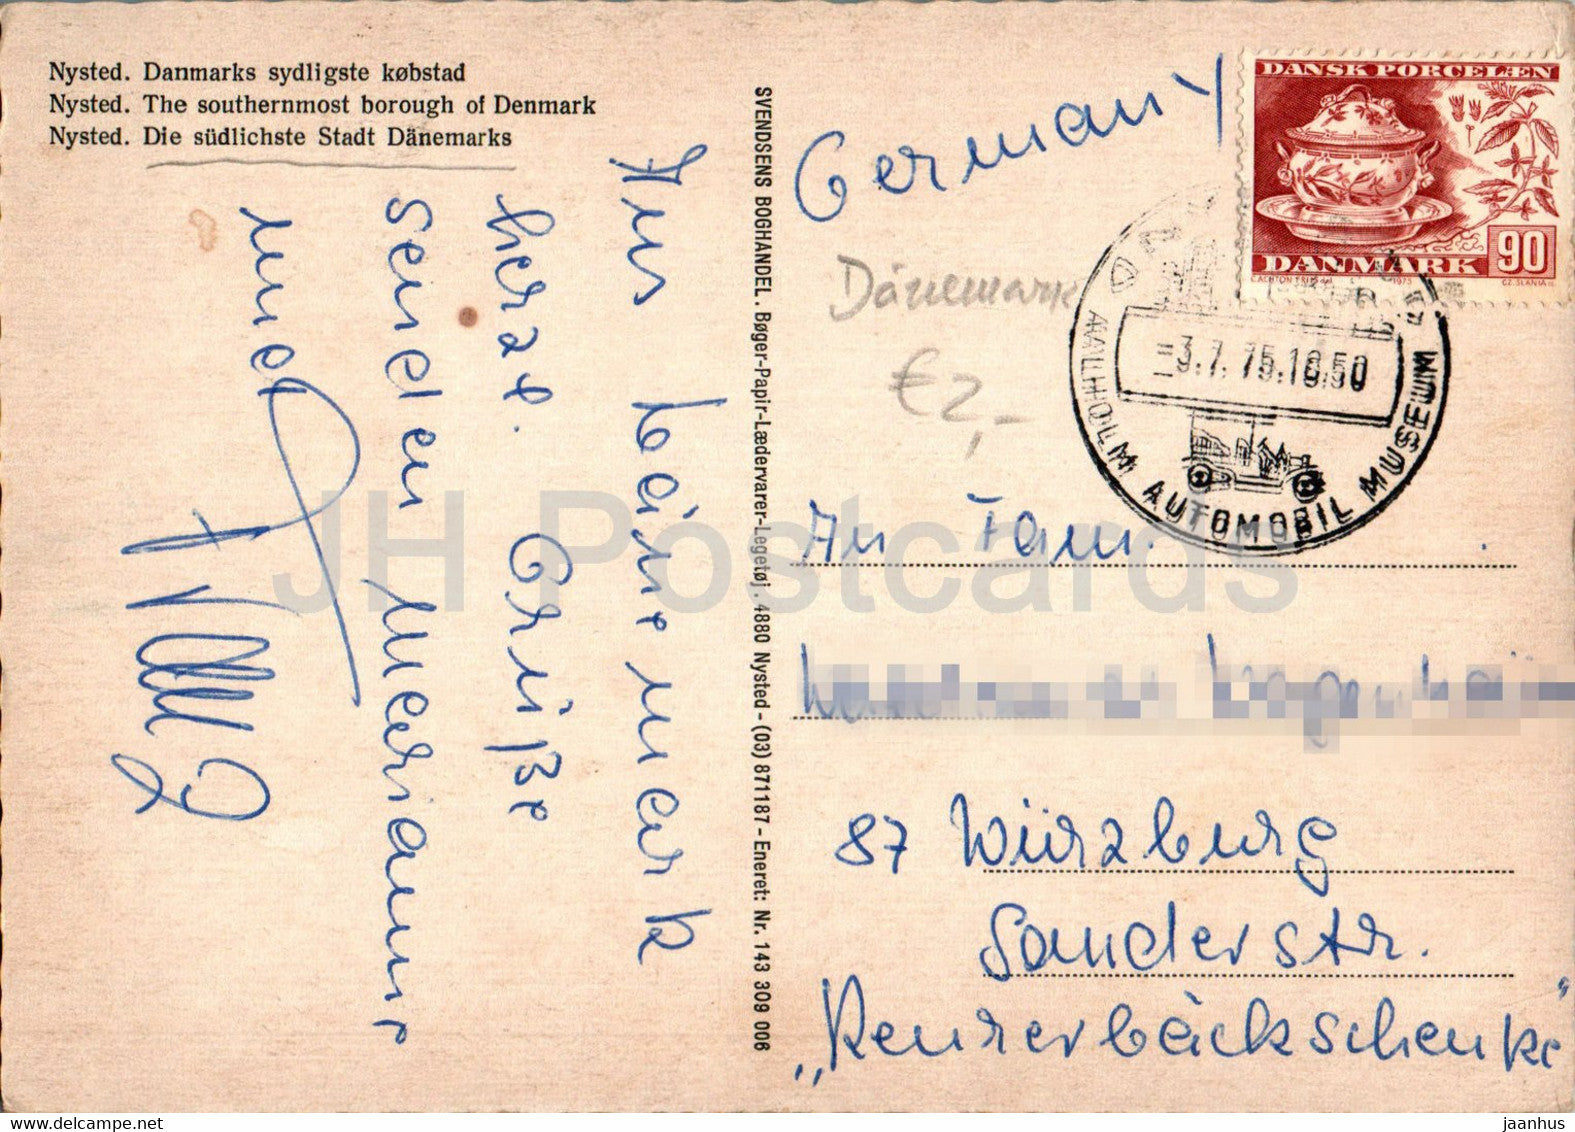 Nysted. Danmarks sydligste købstad
Nysted. The southernmost borough of Denmark
Nysted. Die südlichste Stadt Dänemarks
Aus Dänemark
herzl. Grüße
senden Marianne
und
SVENDSENS BOGHANDEL. Bøger-Papir-Lædervarer-Legetøj. 4880 Nysted - (03) 871187 - Eneret: Nr. 143 309 006
Germany
DANSK PORCELÆN
DANMARK 90
1975
CZ. SLANIA
Dänemark
€ 2,-
3.7.75.16.50
AALHOLM AUTOMOBIL MUSEUM
An Fam.
87 Würzburg
Sanderstr.
„Reurerbäckschenke"
JH Postcards
www.delcampe.net
jaanhus